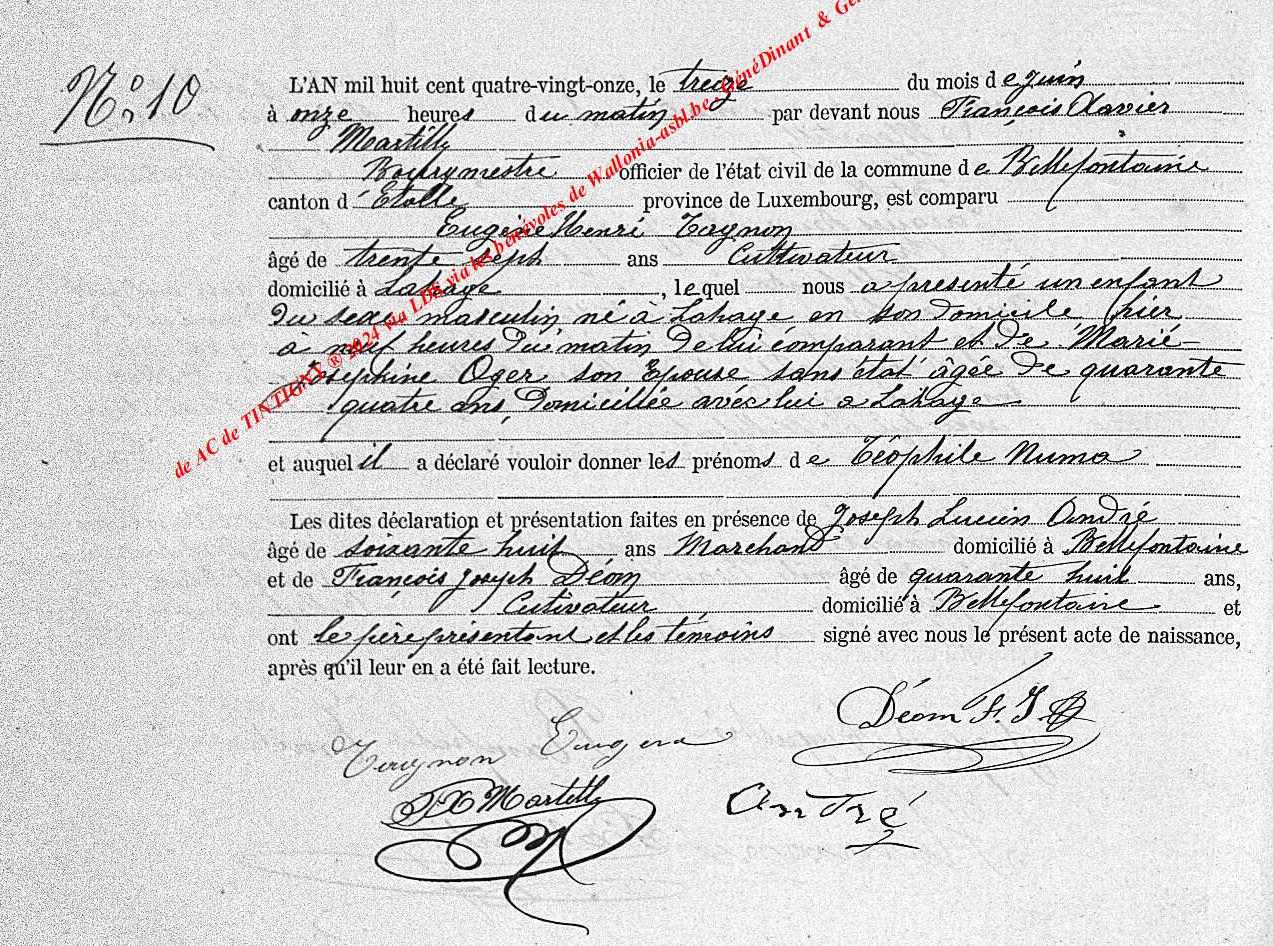 de AC de TINTIGNY ® 2024 via LDS via les bénévoles de Wallonia-asbl.be - GénéDinant & Gén
N° 10
L'AN mil huit cent quatre-vingt-onze, le treize du mois de juin
à onze heures du matin par devant nous François Xavier
Martilly
Bourgmestre officier de l'état civil de la commune de Bellefontaine
canton d'Etalle province de Luxembourg, est comparu
Eugène Henri
âgé de trente sept ans Cultivateur
domicilié à Lahage, lequel nous a présenté un enfant
du sexe masculin né à Lahage en son domicile hier
à neuf heures du matin de lui comparant et de Marie
Josephine Oger son Epouse sans état âgée de quarante
quatre ans, Domiciliée avec lui a Lahage
et auquel il a déclaré vouloir donner les prénoms de Téophile Numa
Les dites déclaration et présentation faites en présence de Joseph Lucien André
âgé de soixante huit ans Marchand domicilié à Bellefontaine
et de François Joseph Déom âgé de quarante huit ans,
Cultivateur domicilié à Bellefontaine et
ont le père présentant et les témoins signé avec nous le présent acte de naissance,
après qu'il leur en a été fait lecture.
Déom F. J.
Eugene
F X Martilly
André